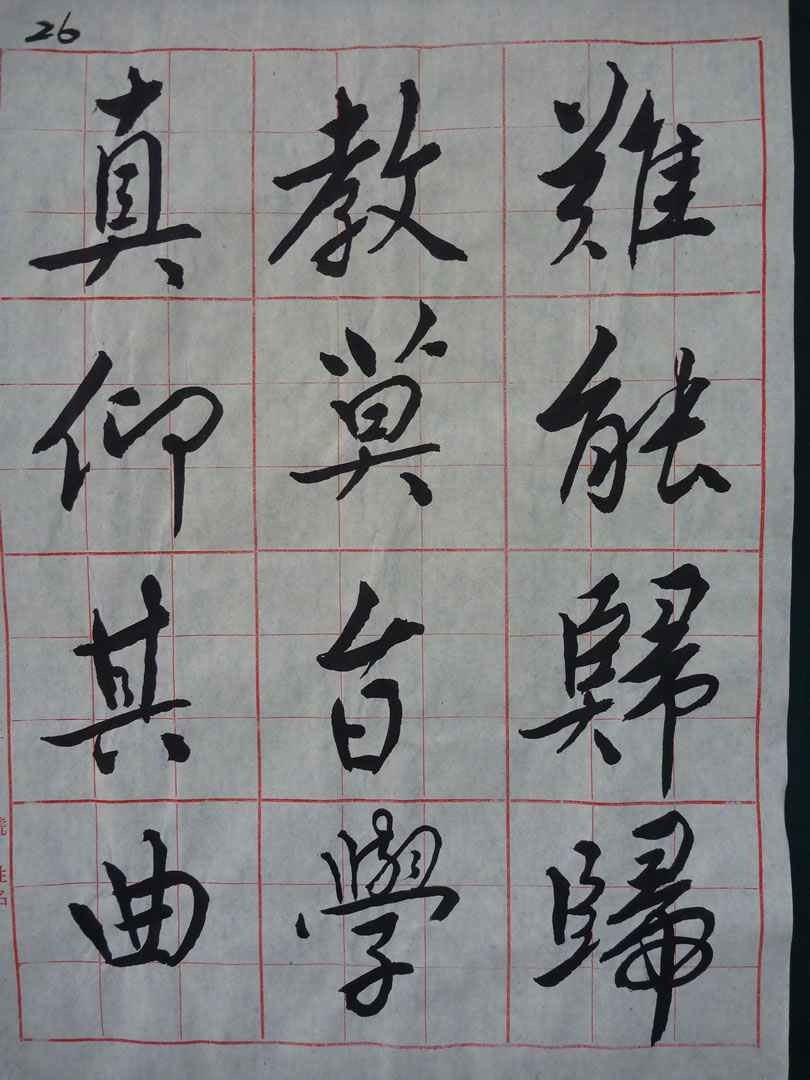 26
真教難
仰莫能
其旨歸
曲學歸